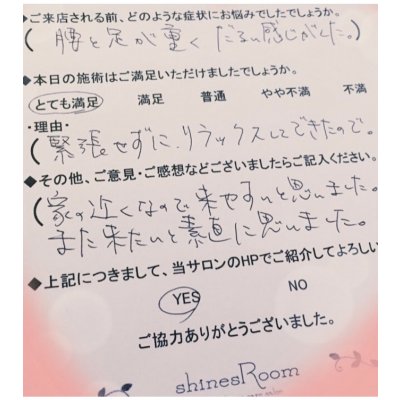 ◆ご来店される前、どのような症状にお悩みでしたでしょうか。
(腰と足が重く だるい感じがした。)
◆本日の施術はご満足いただけましたでしょうか。
とても満足 満足 普通 やや不満 不満
・理由・
(緊張せずに、リラックスしてできたので。
◆その他、ご意見・ご感想などございましたらご記入ください。
(家の近くなので来やすいと思いました。
また来たいと素直に思いました。
◆上記につきまして、当サロンのHPでご紹介してよろしい
YES NO
ご協力ありがとうございました。
shinesRoom